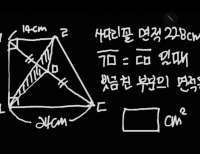 14cm
ㄹ
사다리꼴 면적 228cm
ㅁ
일때
빗금친 부분의 면적은
24cm
ㄷ
cm²